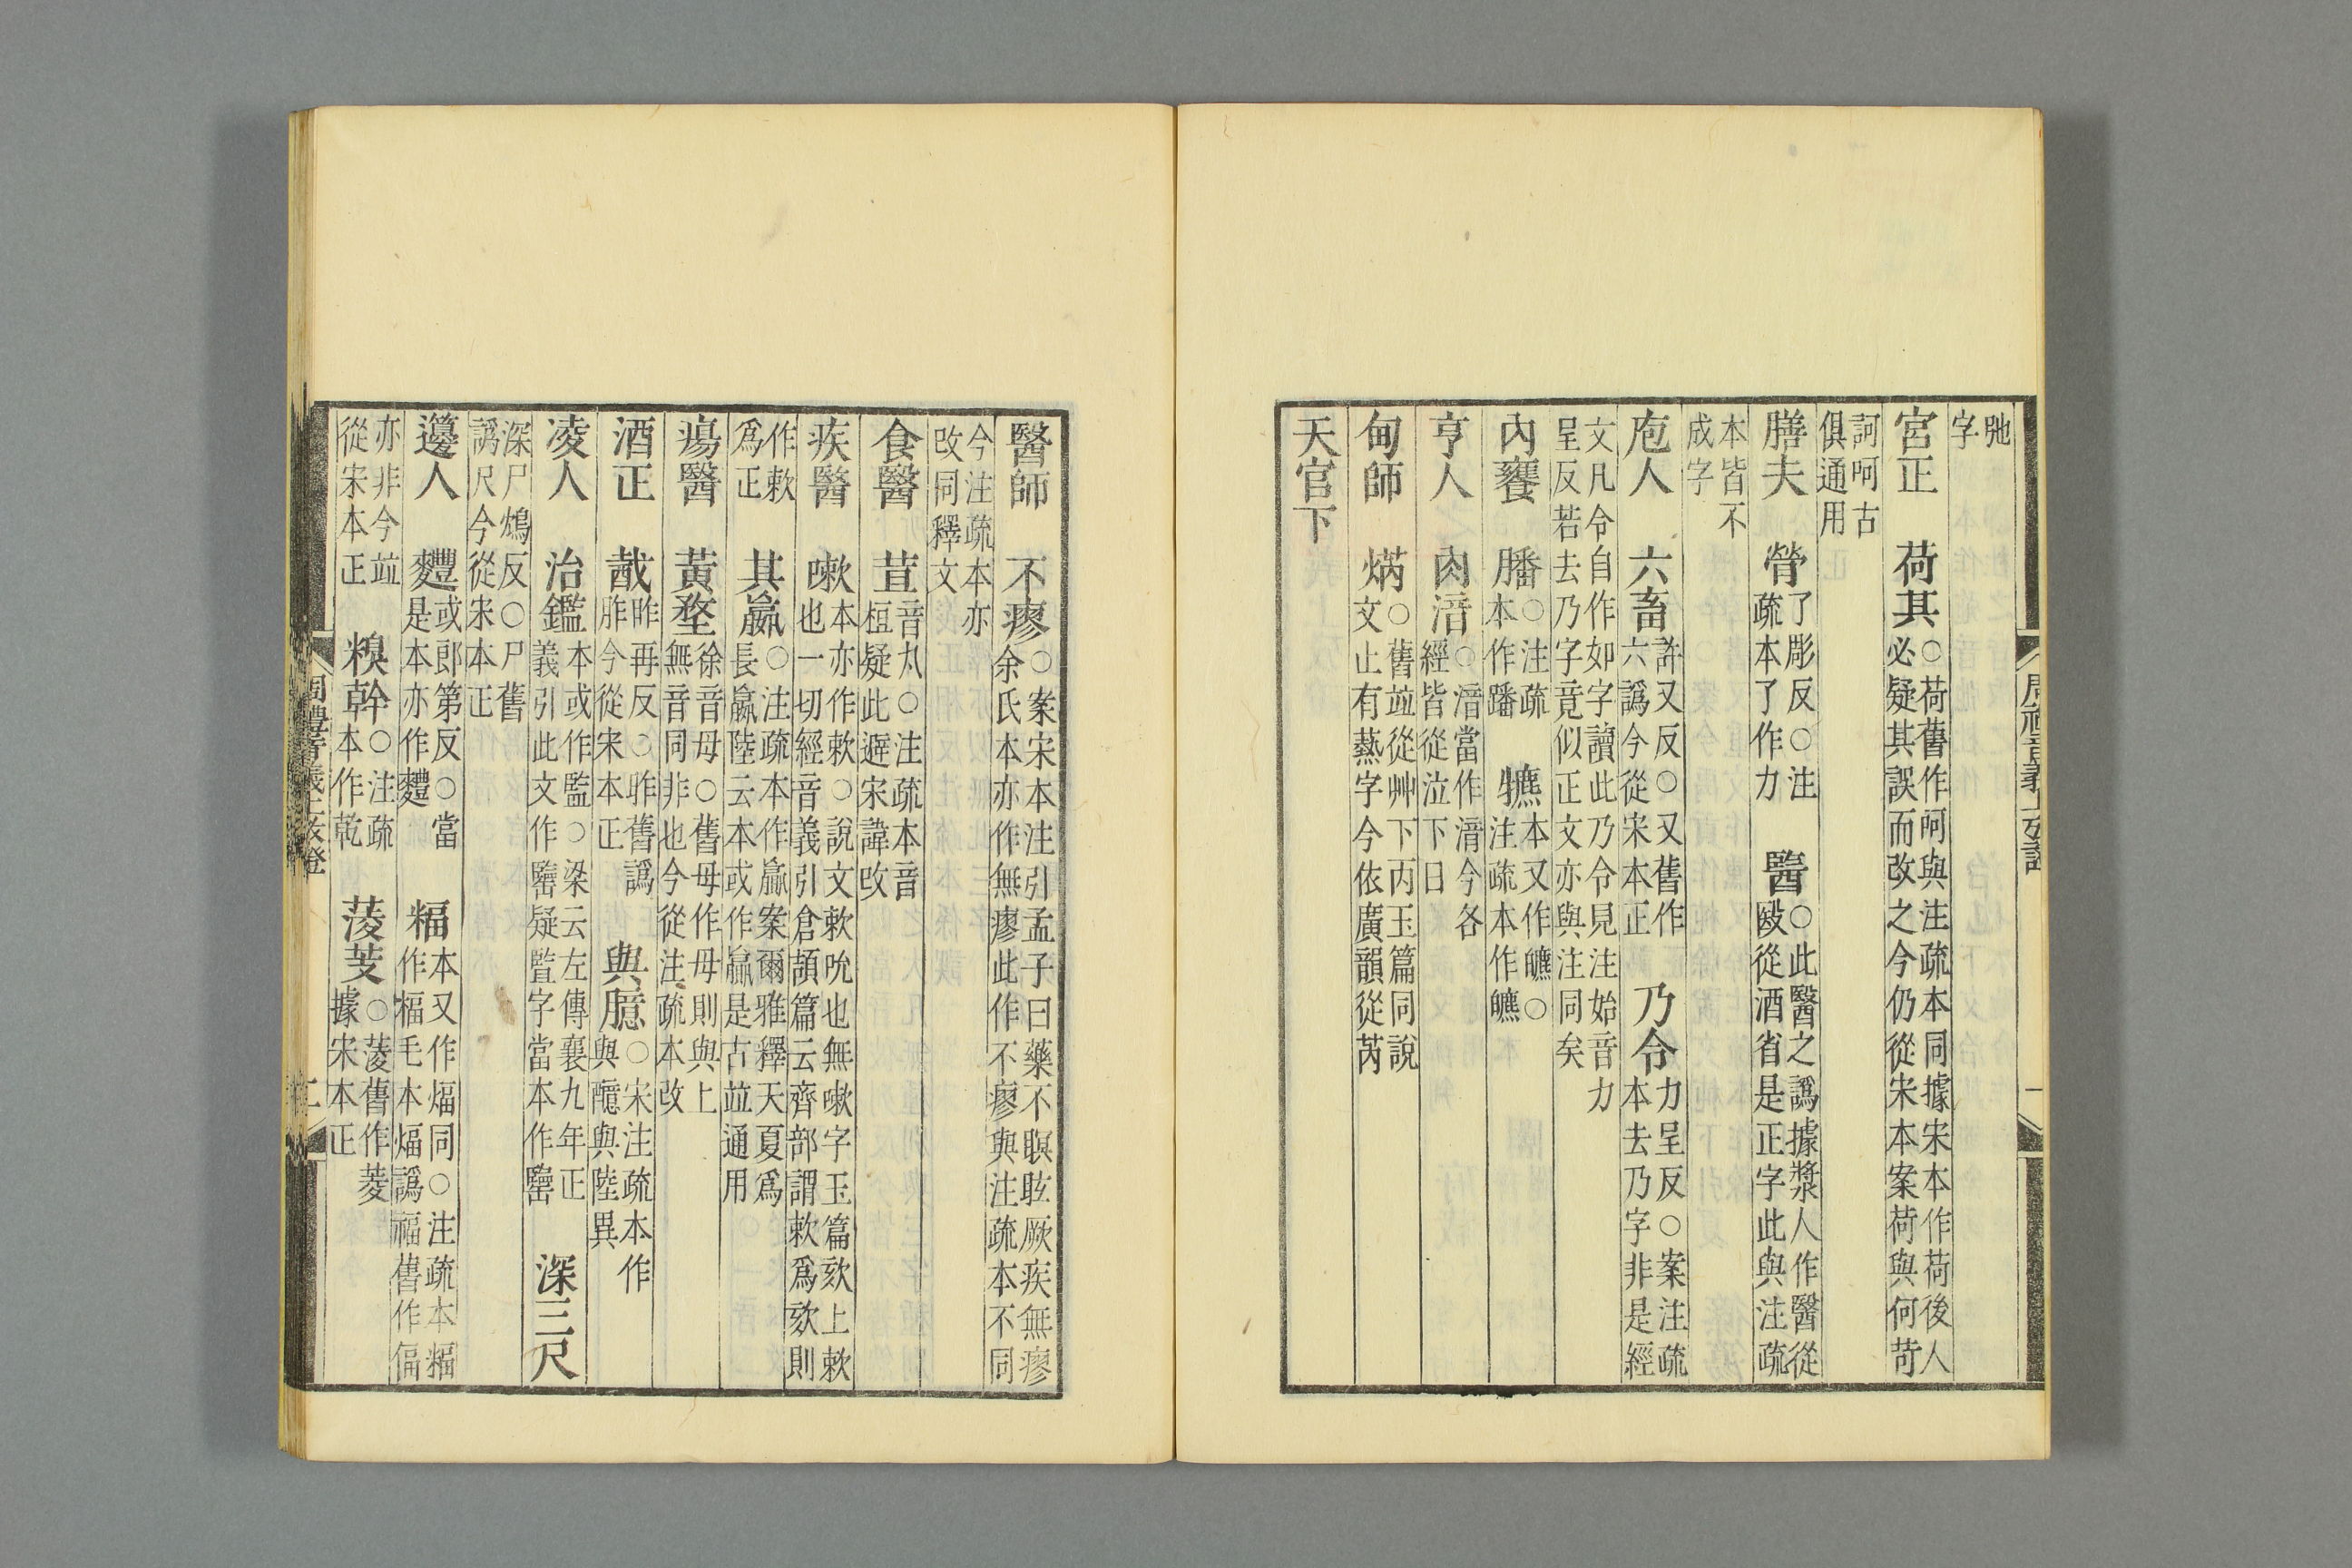 弛
字
宮正　荷其○荷舊作呵與注疏本同據宋本作荷後人
必疑其誤而改之今仍從宋本案荷與何苛
訶呵古
俱通用
膳夫　膋了彫反○注
疏本了作力　醫○此醫之譌據漿人作醫從
酉從酒省是正字此與注疏
本皆不
成字
庖人　六畜許又反○又舊作
六譌今從宋本正　乃令力呈反○案注疏
本去乃字非是經
文凡令自作如字讀此乃令見注始音力
呈反若去乃字竟似正文亦與注同矣
內饔　膰○注疏
本作蹯　𤛑本又作皫○
注疏本作皫
亨人　肉湇○湇當作湆今各
經皆從泣下日
甸師　焫○舊並從艸下丙玉篇同說
文止有爇字今依廣韻從芮
天官下
醫師　不瘳○案宋本注引孟子曰藥不瞑眩厥疾無瘳
余氏本亦作無瘳此作不瘳與注疏本不同
今注疏本亦
改同釋文
食醫　荁音丸○注疏本音
桓疑此避宋諱改
疾醫　嗽本亦作欶○說文欶吮也無嗽字玉篇欬上欶
也一切經音義引倉頡篇云齊部謂欶爲欬則
作欶
爲正
其贏○注疏本作羸案爾雅釋天夏爲
長嬴陸云本或作贏是古並通用
瘍醫　黃堥徐音毋○舊毋作毋則與上
無音同非也今從注疏本改
酒正　酨昨再反○昨舊譌
胙今從宋本正　與臆○宋注疏本作
與醷與陸異
凌人　治鑑本或作監○梁云左傳襄九年正
義引此文作𨰉疑監字當本作𨰉　深三尺
深尸鴆反○尸舊
譌尺今從宋本正
籩人　麷或郎第反○當
是本亦作麷　䊧本又作煏同○注疏本䊧
作楅毛本煏譌福舊作偪
亦非今並
從宋本正　糗幹○注疏
本作乾　蔆芰○蔆舊作菱
據宋本正